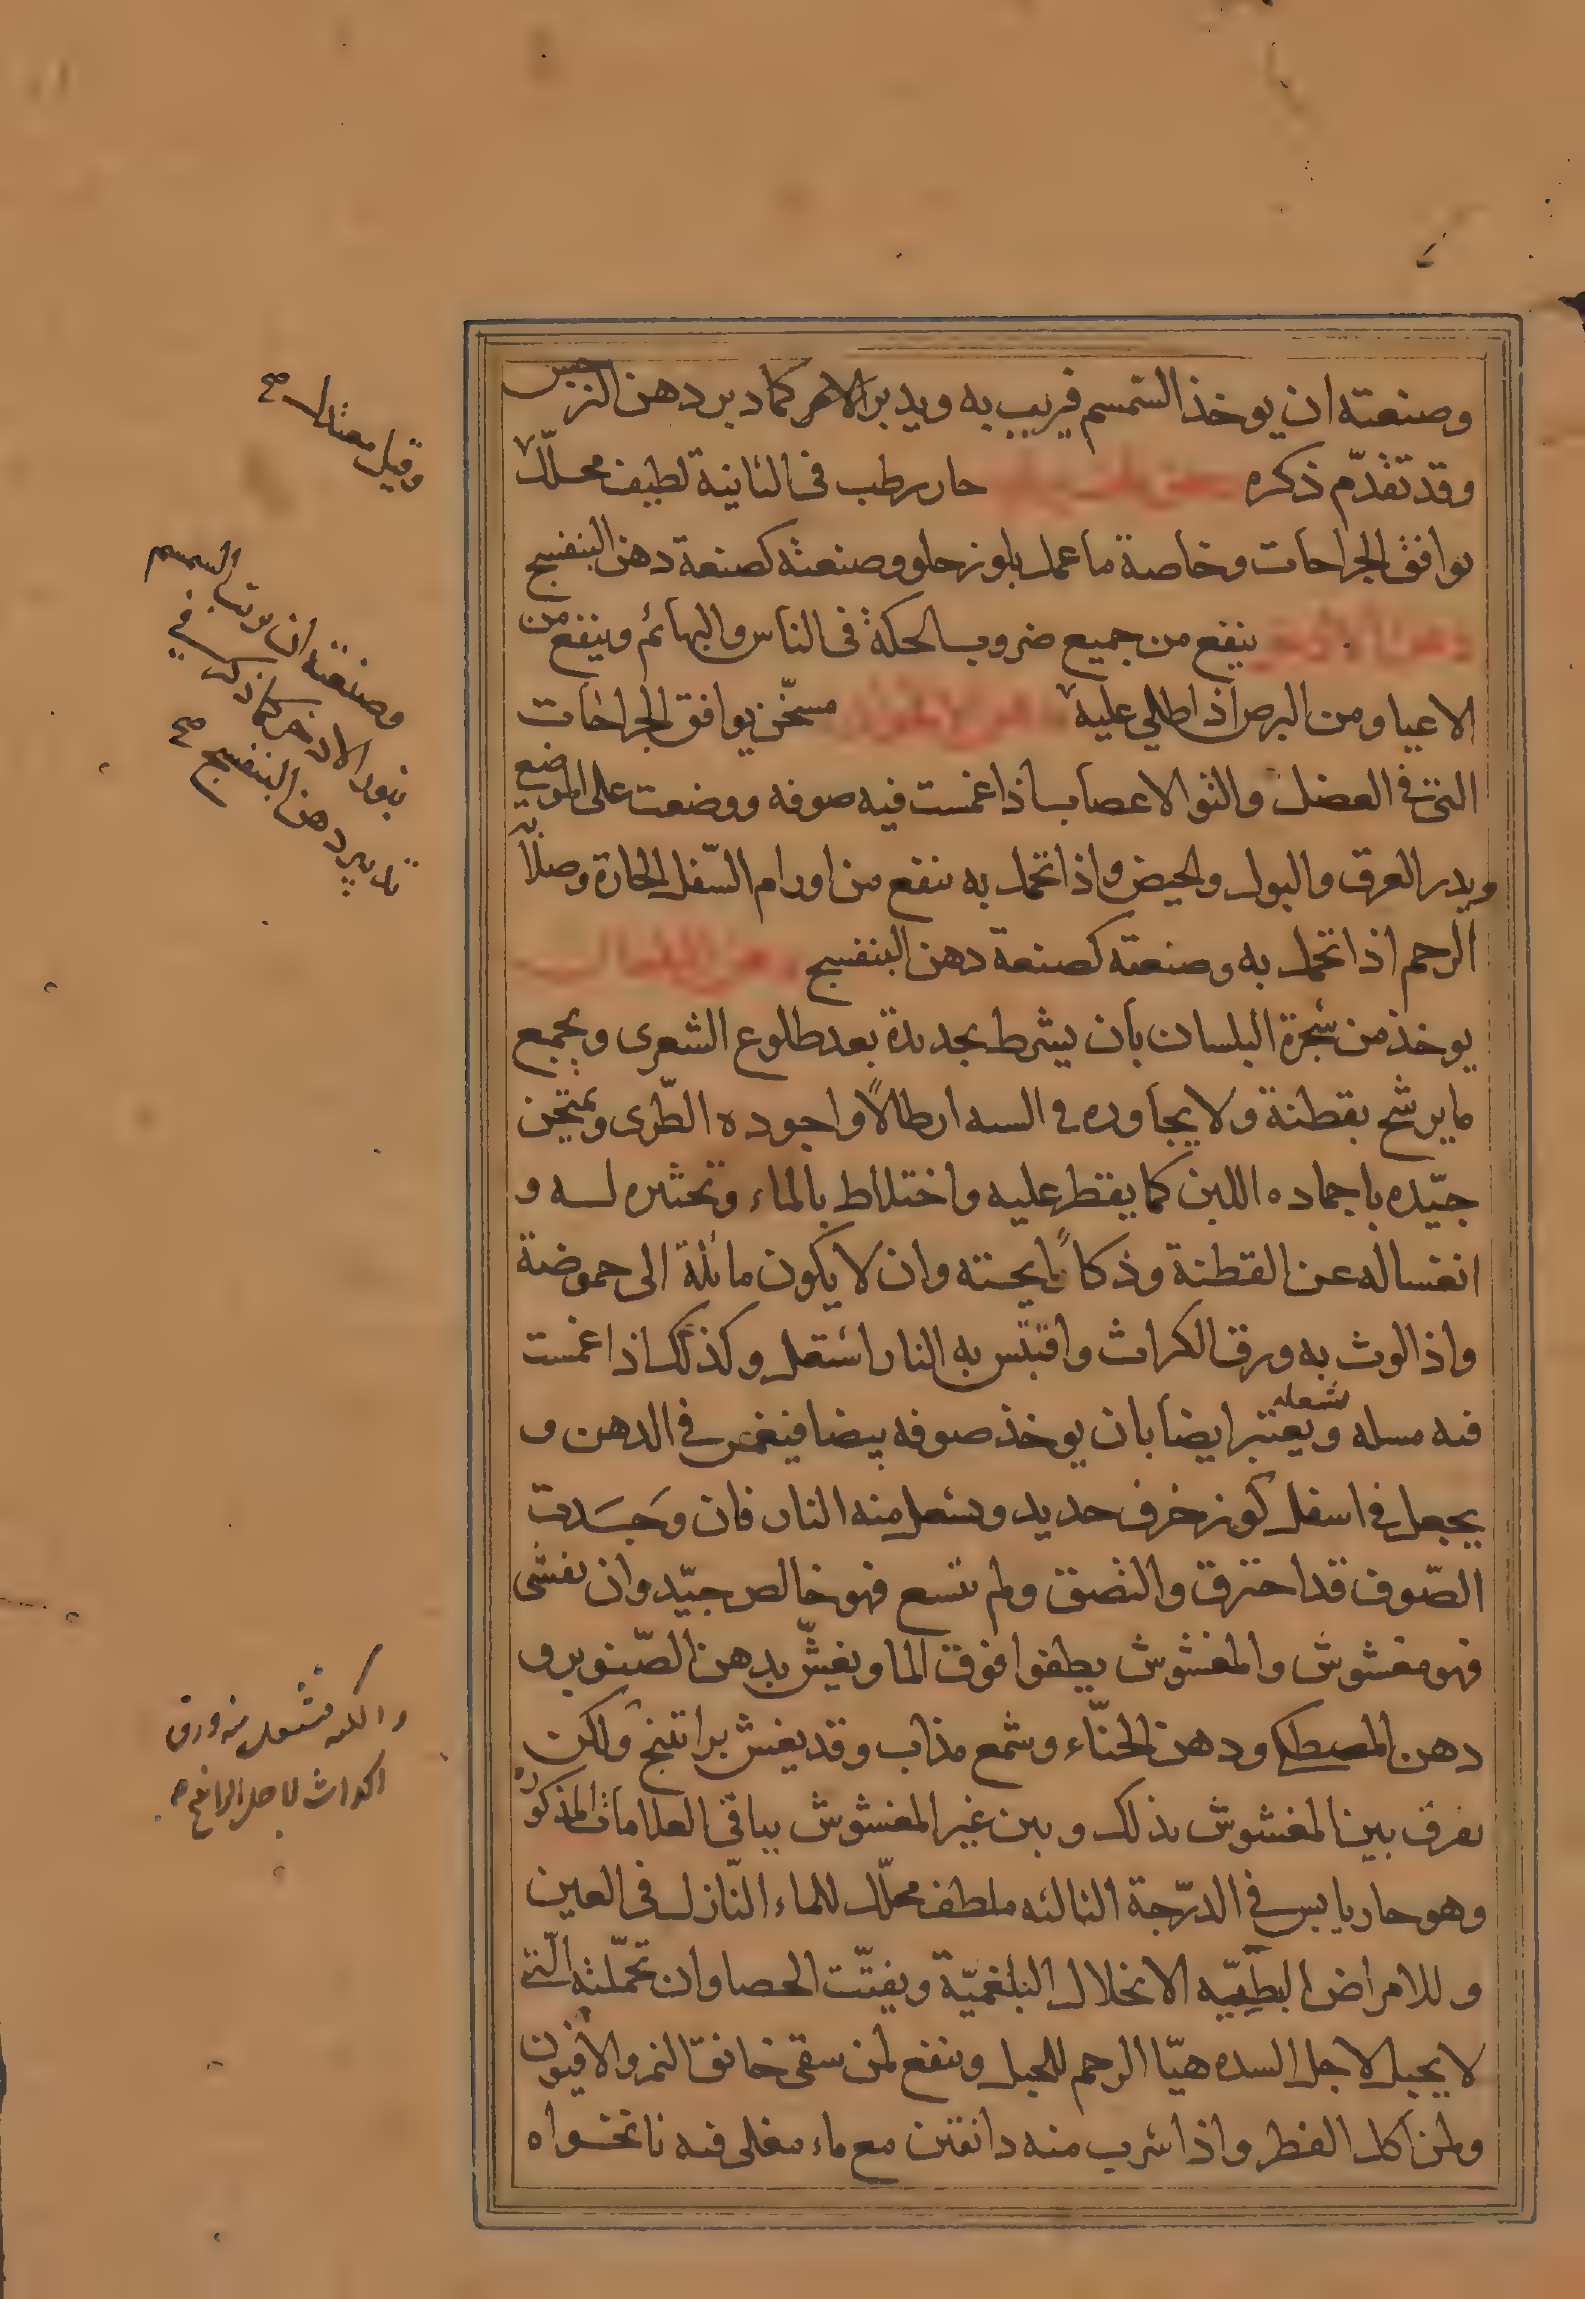 وصنعته ان يوخذ السمسم فيربب به ويدبر الامر كما دبر دهن النرجس
وقد تقدّم ذكره حار رطب فى الثانية لطيف محلّل
يوافق الجراحات وخاصة ما عمل بلوز حلو وصنعته كصنعة دهن البنفسج
دهن الاذخر ينفع من جميع ضروب الحكة فى الناس والبهائم وينفع من
الاعيا ومن البرص اذا طلي عليه مسخّن يوافق الجراحات
التى فى العضل والتوا الاعصاب اذا غمست فيه صوفه ووضعت على الموضع
ويدر العرق والبول والحيض واذا تحمل به ينفع من اورام السّفل الحارة وصلابه
الرحم اذا تحمل به وصنعته كصنعة دهن البنفسج دهن البلسان
يوخذ من شجرة البلسان بان يشرط بحديدة بعد طلوع الشعرى ويجمع
ما يرشح بقطنة ولا يجاوره فى السه ارطالاً واجوده الطّرى ويمتحن
جيّده باجماده اللبن كما يقطر عليه واختلاط بالماء وتخثيره له و
انغساله عن القطنة وذكا رايحته وان لا يكون مائلة الى حموضة
واذا لوث به ورق الكراث واقتبس به النار اشتعل وكذلك اذا غمست
فيه مسله شعله ويعتبر ايضا بان يوخذ صوفه بيضا فيغمس فى الدهن و
يجعل فى اسفل كوز خزف جديد ويشعل منه النار فان وجدت
الصّوف قد احترق والتصق ولم يتسع فهو خالص جيّد وان تفشى
فهو مغشوش والمغشوش يطفوا فوق الما ويغشّ بدهن الصّنوبر و
دهن المصطكى ودهن الحنّاء وشمع مذاب وقد يغش براتينج ولكن
يفرق بين المغشوش بذلك وبين غير المغشوش بباقى العلامات المذكوره
وهو حار يابس فى الدرّجة الثالثه ملطف محلّل للماء النّازل فى العين
وللامراض البطيّيه الانحلال البلغميّة ويفتّت الحصا وان تحمّلته الّتى
لا يحبل لاجل السده هيّا الرحم للحبل وينفع لمن سقى خانق النمر والافيون
ولمن اكل الفطر واذا شرب منه دانقين مع ماء مغلى فيه نانخواه
وقيل معتدل صح
وصنعته ان يربب السمسم
بنور الاذخر كما ذكر فى
تدبير دهن البنفسج صح